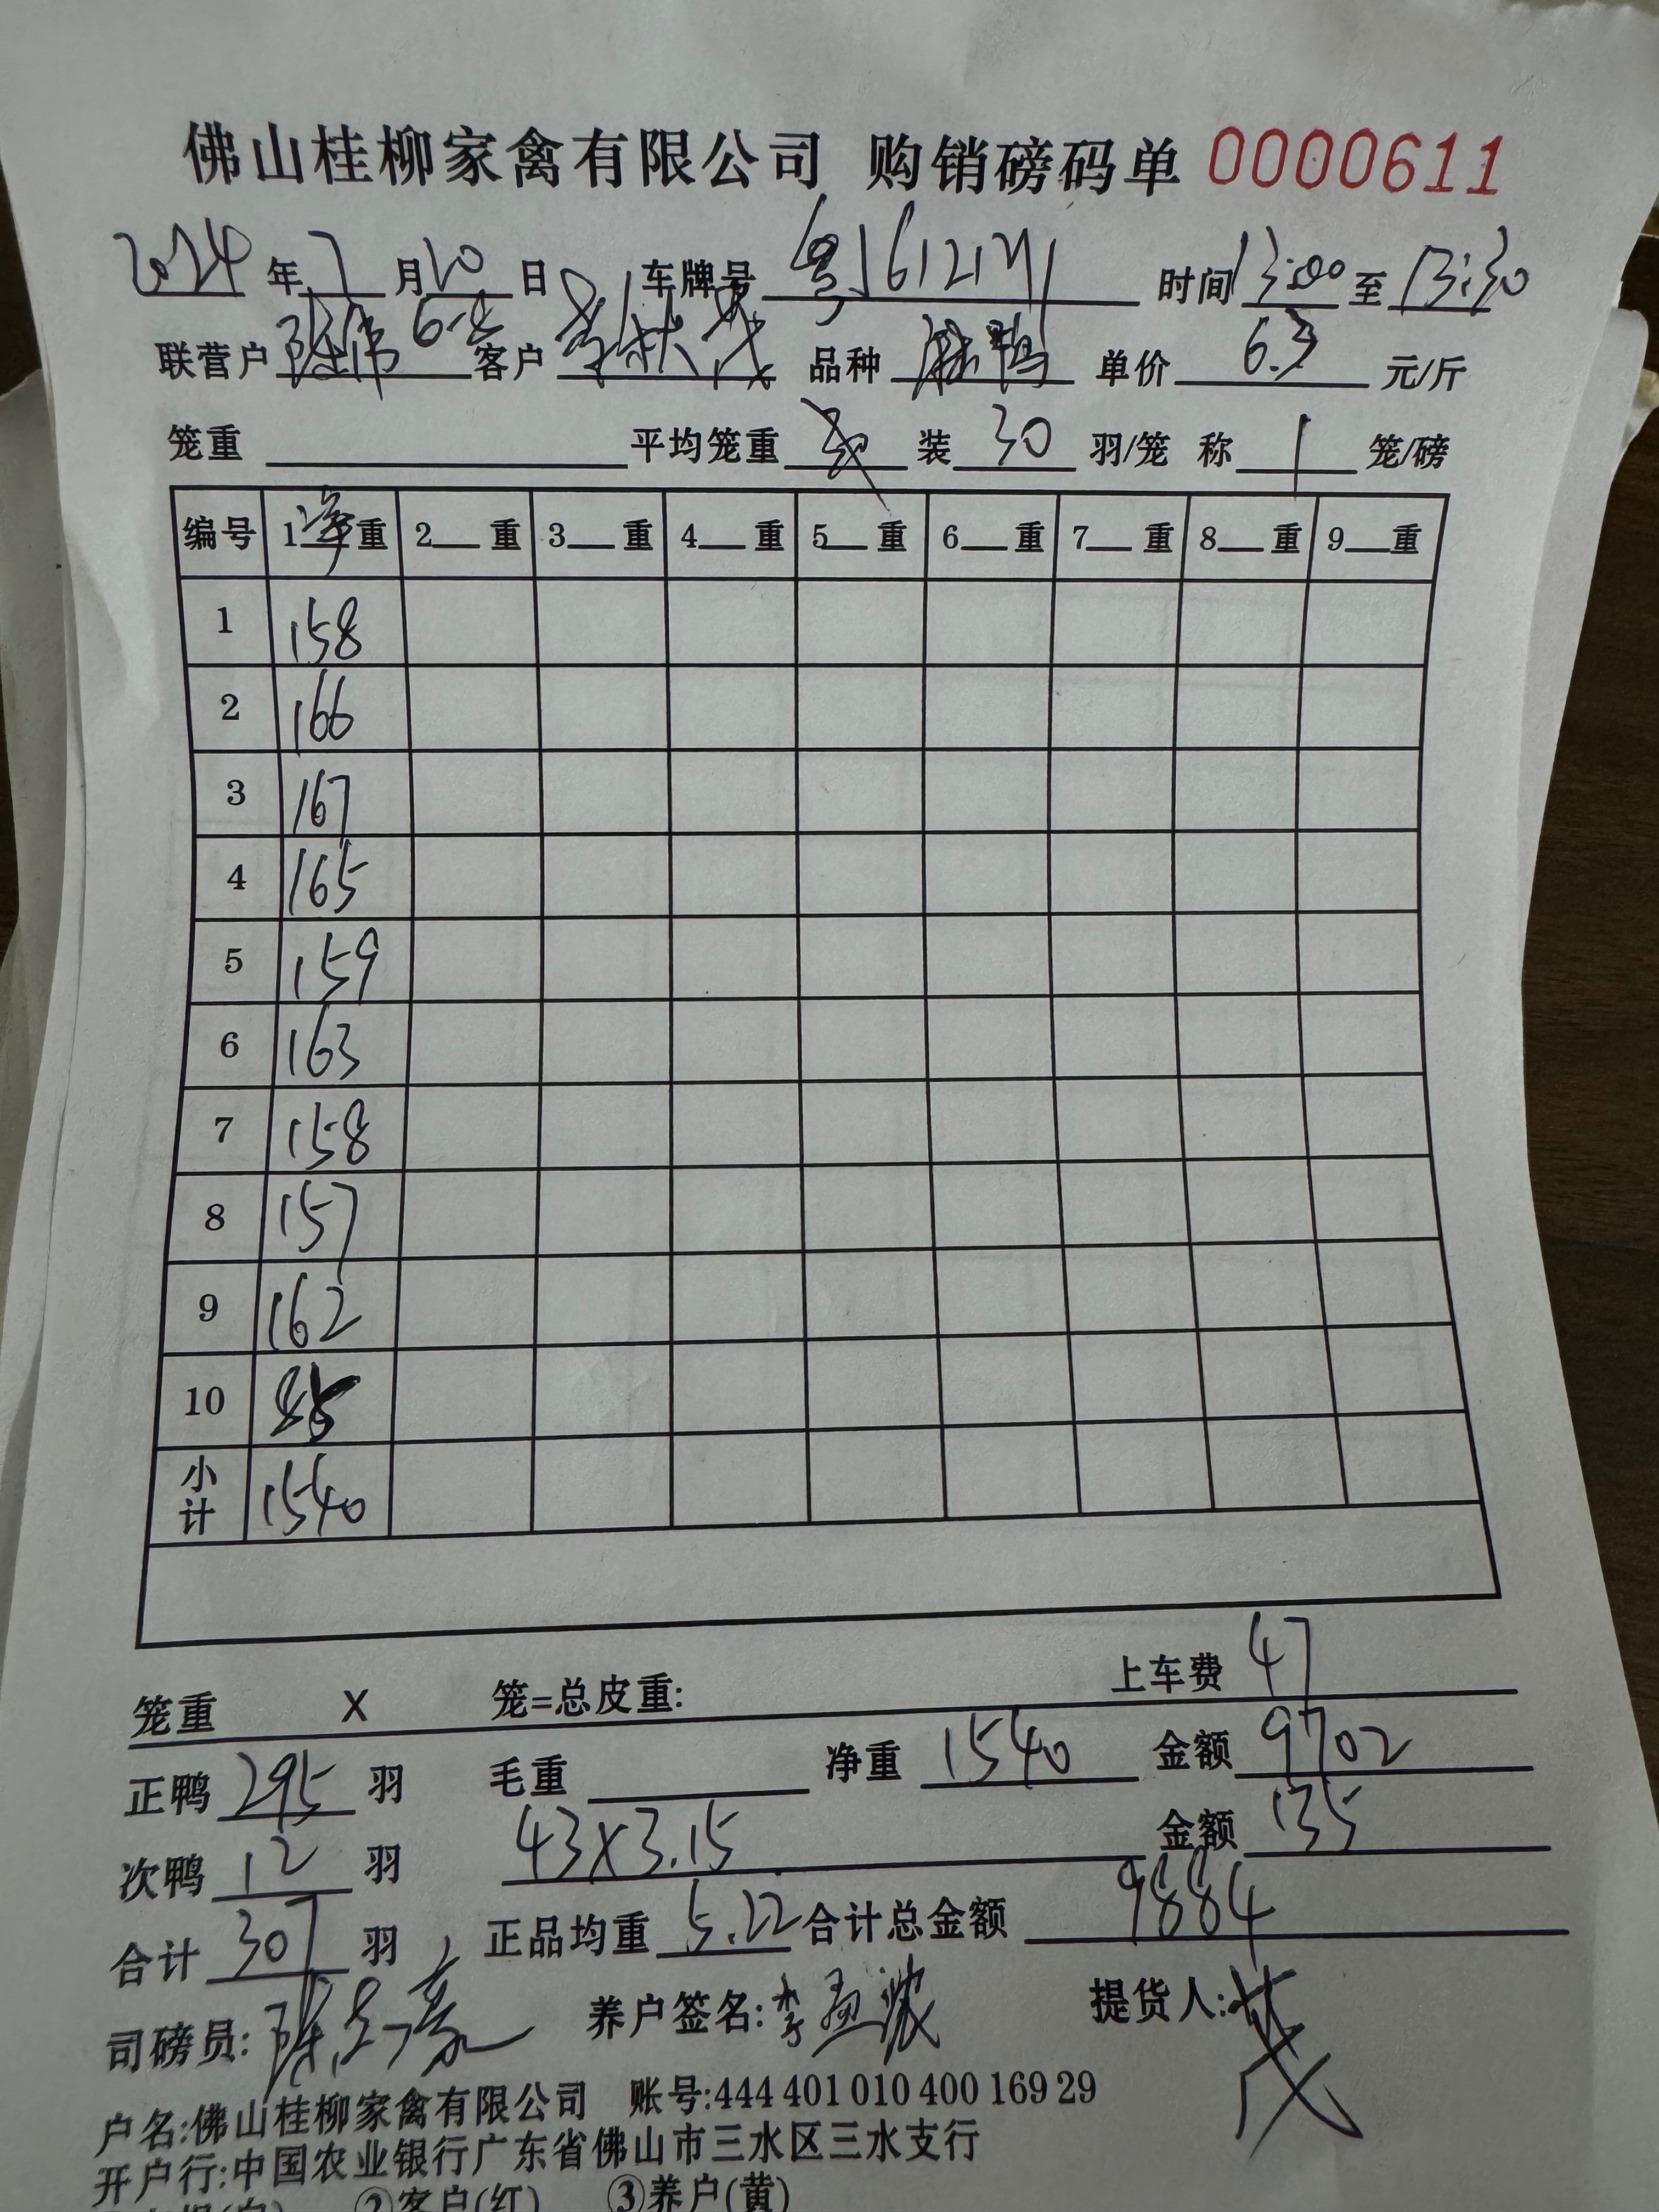 佛山桂柳家禽有限公司 购销磅码单 0000611
2024年7月10日 车牌号 粤J612 时间13:00至13:30
联营户 陈伟 客户 李秋茂 品种 麻鸭 单价 6.3 元/斤
笼重 平均笼重 装 30 羽/笼 称 1 笼/磅
编号 1净重 2 重 3 重 4 重 5 重 6 重 7 重 8 重 9 重
1 158
2 166
3 167
4 165
5 159
6 163
7 158
8 157
9 162
10 85
小计 1540
笼重 X 笼=总皮重: 上车费 47
正鸭 295 羽 毛重 净重 1540 金额 9702
次鸭 12 羽 43x3.15 金额 135
合计 307 羽 正品均重 5.22 合计总金额 9884
司磅员: 陈 养户签名: 李 提货人: 茂
户名:佛山桂柳家禽有限公司 账号:444 401 010 400 169 29
开户行:中国农业银行广东省佛山市三水区三水支行
②客户(红) ③养户(黄)